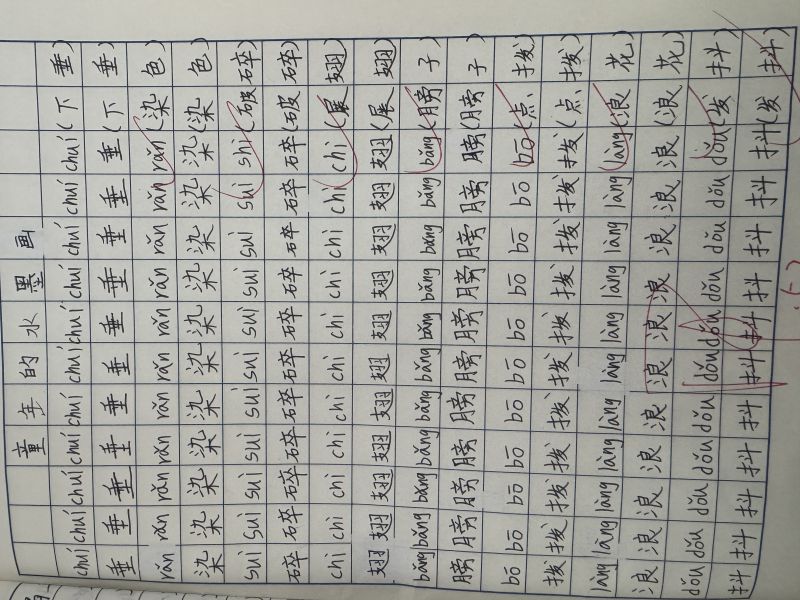 童年的水墨画
chuí chuí chuí chuí chuí chuí chuí chuí chuí chuí chuí(下垂)
垂垂垂垂垂垂垂垂垂垂垂(下垂)
rǎn rǎn rǎn rǎn rǎn rǎn rǎn rǎn rǎn rǎn rǎn(染色)
染染染染染染染染染染染(染色)
suì suì suì suì suì suì suì suì suì suì suì(破碎)
碎碎碎碎碎碎碎碎碎碎碎(破碎)
chì chì chì chì chì chì chì chì chì chì chì(展翅)
翅翅翅翅翅翅翅翅翅翅翅(展翅)
bǎng bǎng bǎng bǎng bǎng bǎng bǎng bǎng bǎng bǎng bǎng(膀子)
膀膀膀膀膀膀膀膀膀膀膀(膀子)
bō bō bō bō bō bō bō bō bō bō bō(点拨)
拨拨拨拨拨拨拨拨拨拨拨(点拨)
làng làng làng làng làng làng làng làng làng làng làng(浪花)
浪浪浪浪浪浪浪浪浪浪浪(浪花)
dǒu dǒu dǒu dǒu dǒu dǒu dǒu dǒu dǒu dǒu dǒu(发抖)
抖抖抖抖抖抖抖抖抖抖抖(发抖)